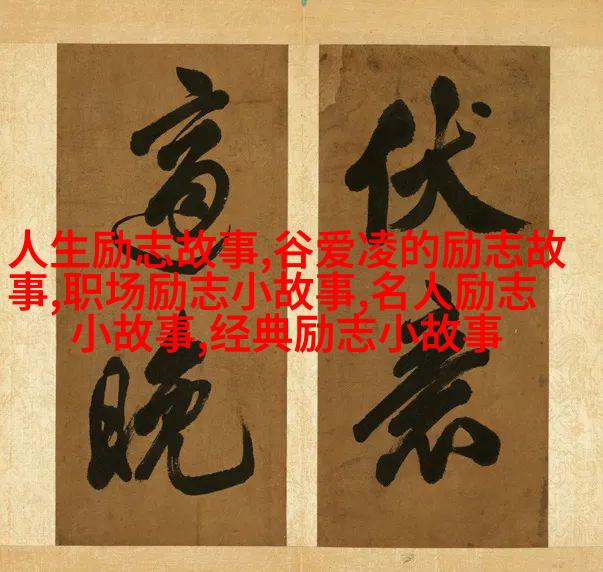 人生励志故事,谷爱凌的励志故
事,职场励志小故事,名人励志
小故事,经典励志小故事
伏
晚